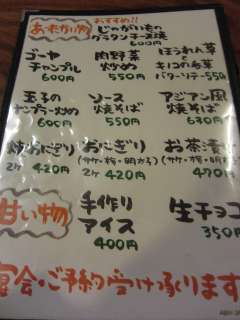 あったかい物
おすすめ!!
じゃがいもの
グラタンチーズ焼
600円
ゴーヤ
チャンプル
600円
肉野菜
炒め
550円
ほうれん草
と
キノコの
バターソテー550
玉子の
ナンプラー炒め
600円
ソース
焼そば
550円
アジアン風
焼そば
630円
焼おにぎり
2ケ 420円
おにぎり
(サケ・梅・明太子)
2ケ 420円
お茶漬
(サケ・梅・明太子)
470円
甘い物
手作り
アイス
400円
生チョコ
350円
宴会・ご予約受け承ります